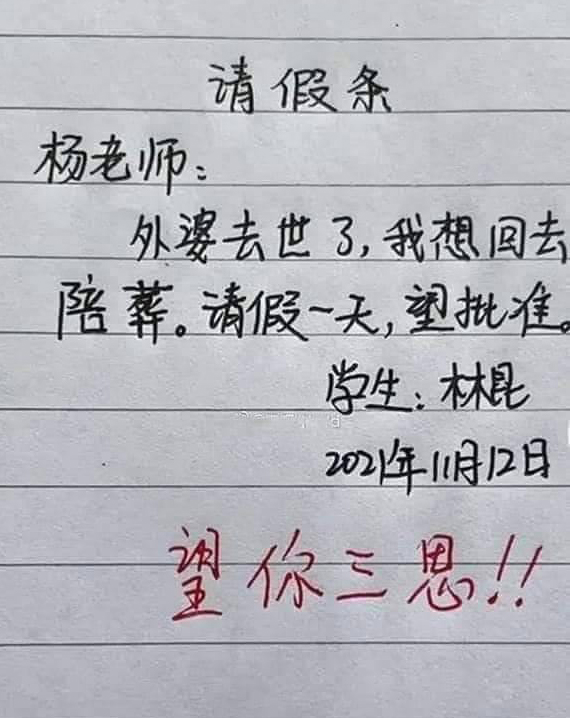 请假条
杨老师:
外婆去世了,我想回去
陪葬。请假一天,望批准。
学生:林昆
2021年11月12日
望你三思!!